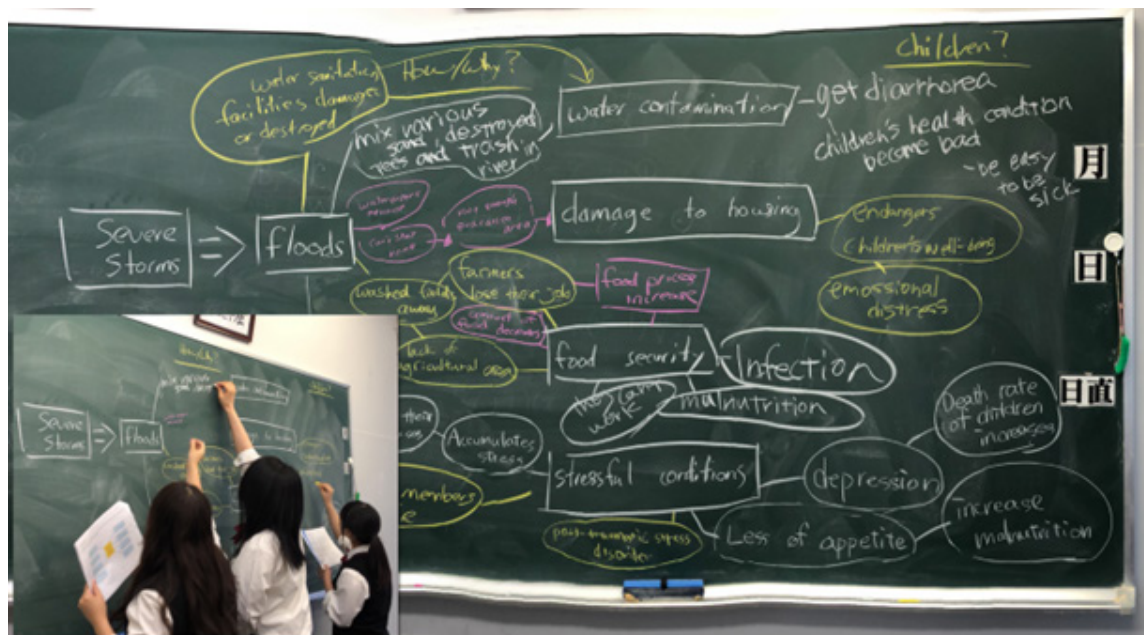 Children?
How/why?
water sanitation
facilities damages
or destroyed
mix various
sand destroyed
trees and trash in
river
water contamination
- get diarrhorea
children's health condition
become bad
- be easy
to be
sick
月
日
日直
Severe
Storms
floods
damage to housing
endangers
children's well-being
emossional
distress
washed
away
farmers
lose their job
food prices
increase
food decreases
lack of
agricultural area
food security
Infection
malnutrition
the
work
their
Accumulates
stress
stressful conditions
depression
Death rate
of children
increases
members
post-traumatic stress
disorder
Less of appetite
increase
malnutrition
Severe
Storms
floods